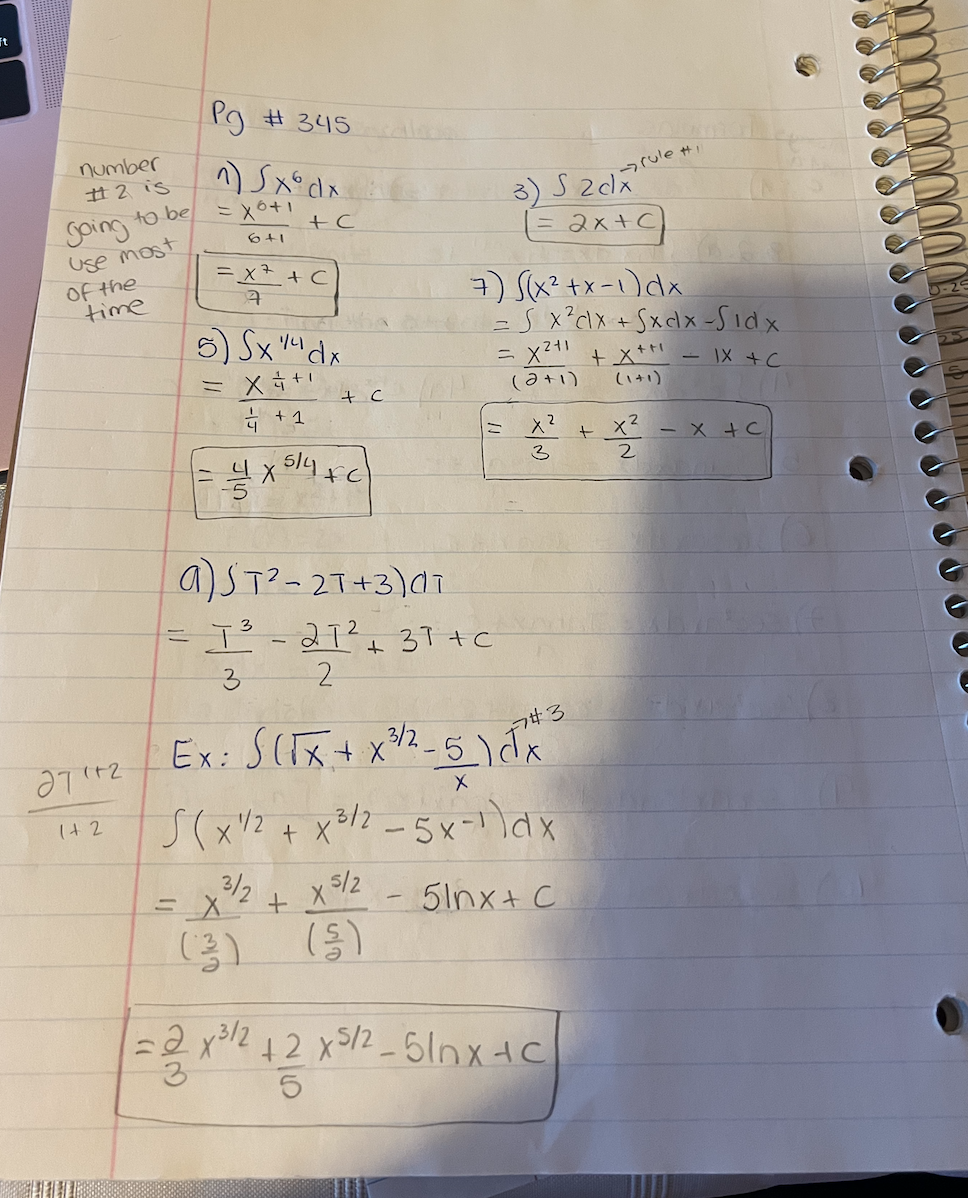 Pg # 345
number
# 2 is
going to be
use most
of the
time
1) ∫x⁶dx
= x⁶⁺¹/6+1 + C
= x⁷/7 + C
→rule #1
3) ∫ 2dx
= 2x + C
5) ∫x^1/4 dx
= x^(1/4 + 1)/(1/4 + 1) + c
= 4/5 x^5/4 + C
7) ∫(x² + x - 1)dx
= ∫ x²dx + ∫xdx - ∫1dx
= x²⁺¹/(2+1) + x¹⁺¹/(1+1) - 1x + C
= x²/3 + x²/2 - x + C
9) ∫T² - 2T + 3)dT
= T³/3 - 2T²/2 + 3T + C
→#3
Ex: ∫(√x + x^3/2 - 5/x)dx
2T^1+2/1+2
∫(x^1/2 + x^3/2 - 5x^-1)dx
= x^3/2/(3/2) + x^5/2/(5/2) - 5lnx + C
= 2/3 x^3/2 + 2/5 x^5/2 - 5lnx + C